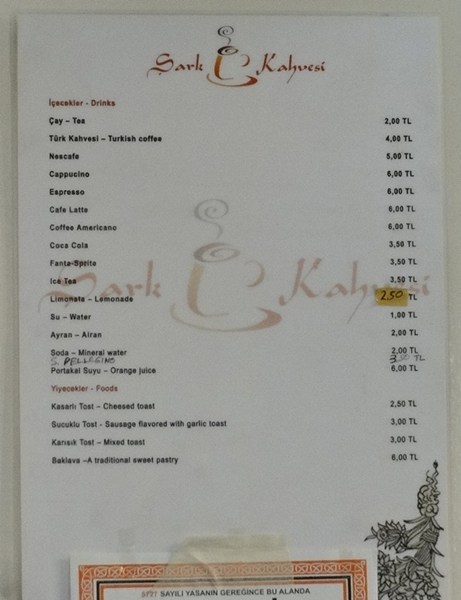 Şark Kahvesi
İçecekler - Drinks
Çay – Tea 2,00 TL
Türk Kahvesi – Turkish coffee 4,00 TL
Nescafe 5,00 TL
Cappucino 6,00 TL
Espresso 6,00 TL
Cafe Latta 6,00 TL
Coffee Americano 6,00 TL
Coca Cola 3,50 TL
Fanta-Sprite 3,50 TL
Ice Tea 3,50 TL
Şark Kahvesi
Limonata – Lemonade 2,50 TL
Su – Water 1,00 TL
Ayran – Airan 2,00 TL
Soda – Mineral water 2,00 TL
S. PELLEGINO 3,50 TL
Portakal Suyu – Orange juice 6,00 TL
Yiyecekler - Foods
Kasarlı Tost – Cheesed toast 2,50 TL
Sucuklu Tost - Sausage flavored with garlic toast 3,00 TL
Karısık Tost – Mixed toast 3,00 TL
Baklava –A traditional sweet pastry 6,00 TL
SAYILI YASANIN GEREĞİNCE BU ALANDA